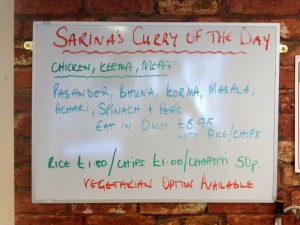 SARINA'S CURRY OF THE DAY
CHICKEN, KEEMA, MEAT
PASANDER, BHUNA, KORMA, MASALA,
ACHARI, SPINACH + PEAS
EAT IN ONLY £5.95
WITH RICE/CHIPS
RICE £1.80/CHIPS £1.00/CHAPATTI 50p.
VEGETARIAN OPTION AVAILABLE